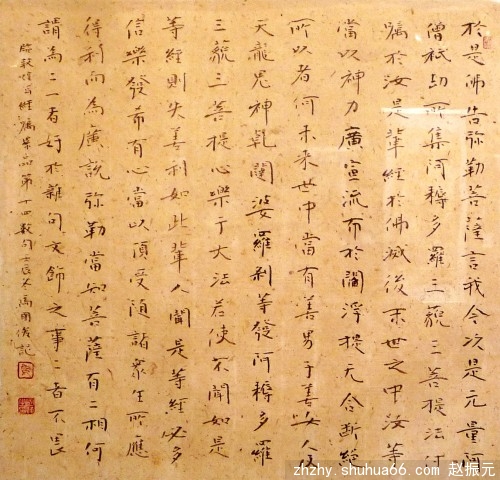 於是佛告弥勒菩薩言我今以是无量阿
僧祇劫所集阿耨多羅三藐三菩提法付
囑於汝是輩經於佛滅後末世之中汝等
當以神力廣宣流布於閻浮提无令斷絶
所以者何未來世中當有善男子善女人及
天龍鬼神乾闥婆羅刹等發阿耨多羅
三藐三菩提心樂于大法若使不聞如是
等經則失善利如此輩人聞是等經必多
信樂發希有心當以頂受随諸眾生所應
得利而為廣説弥勒當如菩薩有二相何
謂為二一者好於雜句文飾之事二者不畏
敦煌寫經囑累品第十四數句壬辰記
zhzhy.shuhua66.com 赵振元